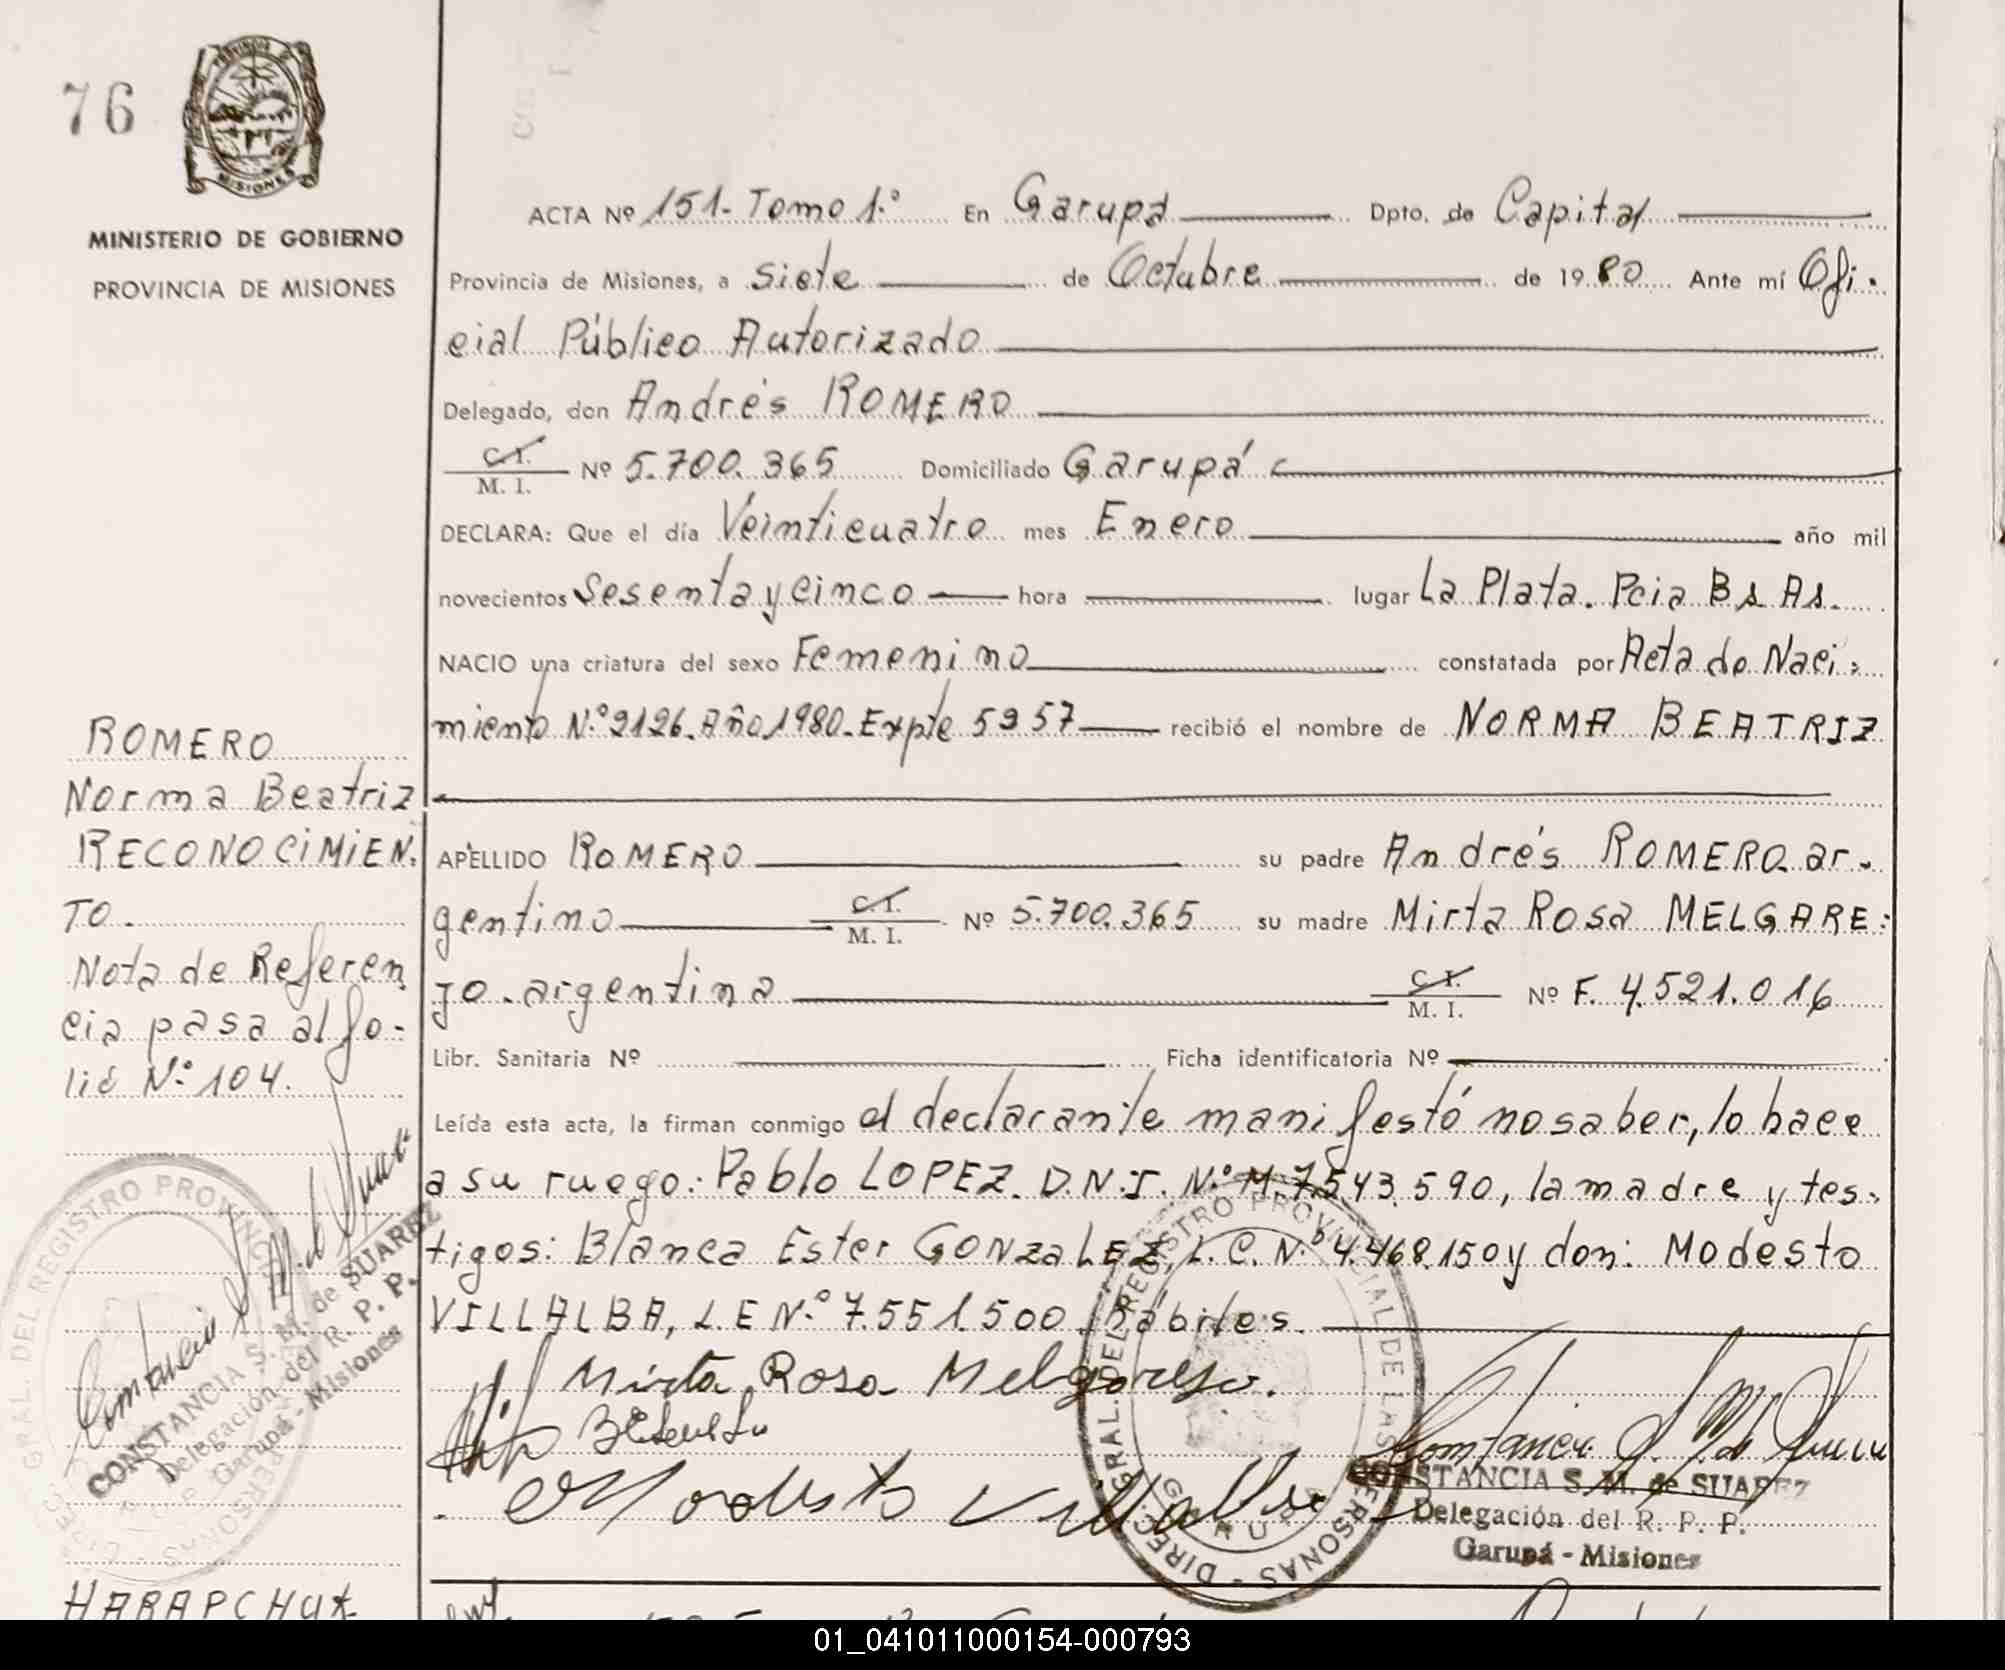 76
MISIONES
MINISTERIO DE GOBIERNO
PROVINCIA DE MISIONES
ROMERO
Norma Beatriz
RECONOCIMIEN.
TO.
Nota de Referen
cia pasa al fo-
lio Nº 104.
CONSTANCIA S. M. de SUAREZ
Delegación del R. P. P.
Garupá - Misiones
HARAPCHUK
ACTA Nº 151- Tomo 1º En Garupá Dpto. de Capital
Provincia de Misiones, a Siete de Octubre de 1980 Ante mí Ofi-
cial Público Autorizado
Delegado, don Andrés ROMERO
C. I.
M. I. Nº 5.700.365 Domiciliado Garupá
DECLARA: Que el día Veinticuatro mes Enero año mil
novecientos Sesenta y cinco hora lugar La Plata. Pcia Bs As.
NACIO una criatura del sexo Femenino constatada por Acta de Naci-
miento Nº 2126. Año 1980. Expte 5257 recibió el nombre de NORMA BEATRIZ
APELLIDO ROMERO su padre Andrés ROMERO ar-
gentino C. I. M. I. Nº 5.700.365 su madre Mirta Rosa MELGARE-
JO. argentina C. I. M. I. Nº F. 4.521.016
Libr. Sanitaria Nº Ficha identificatoria Nº
Leída esta acta, la firman conmigo el declarante manifestó no saber, lo hace
a su ruego: Pablo LOPEZ. D.N.I. Nº M.7.543.590, la madre y tes-
tigos: Blanca Ester GONzaLEZ, L.C. Nº 4.468.150 y don: Modesto
VILLALBA, L.E Nº 7.551.500 hábiles.
Mirta Rosa Melgarejo.
Modesto Villalba
CONSTANCIA S. M. de SUAREZ
Delegación del R. P. P.
Garupá - Misiones
01_041011000154-000793